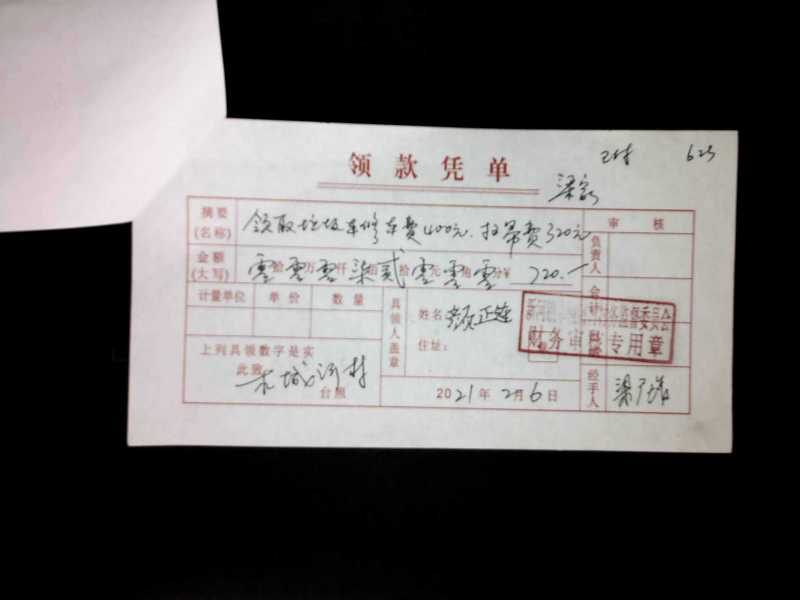 领款凭单
已付 625
摘要(名称) 领取垃圾车修车费400元.扫帚费320元
审核
负责人
金额(大写) 零拾零万零仟柒佰贰拾零元零角零分¥ 720.—
计量单位 单价 数量
具领人盖章
姓名 正莲
住址:
会计
财务审 专用章
上列具领数字是实
此致
台照
2021年2月6日
经手人 梁